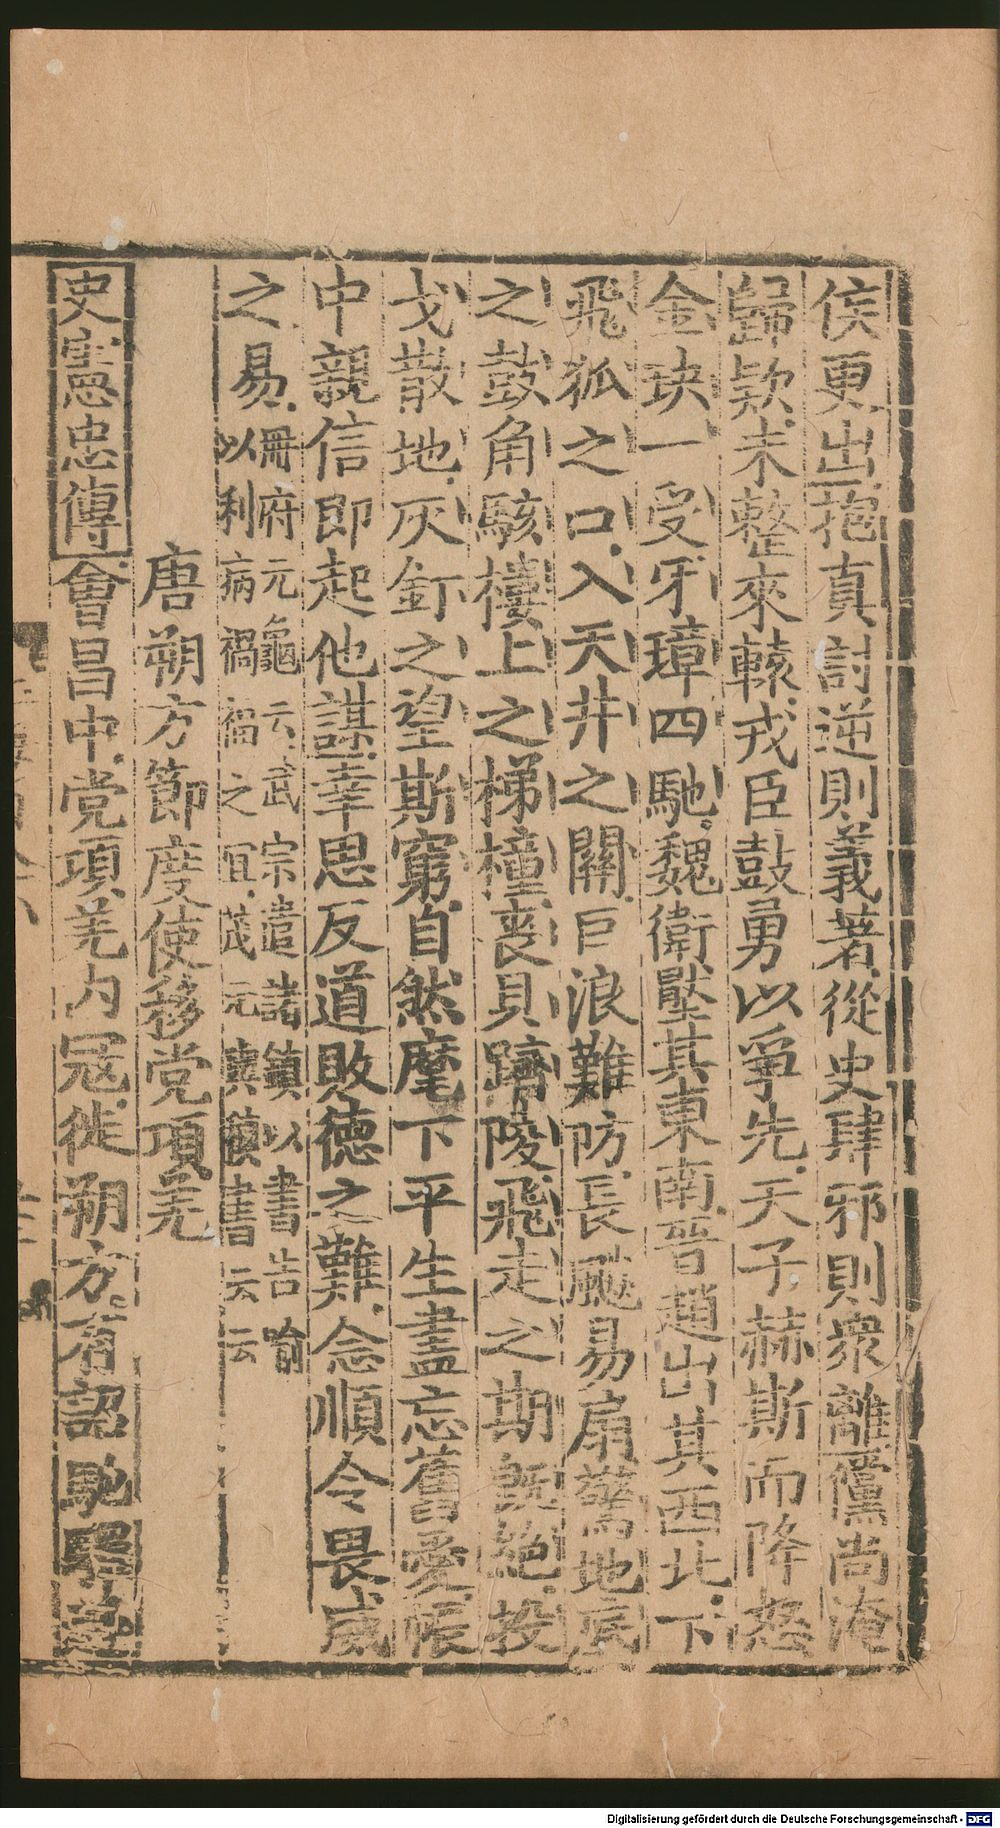 俟更出抱真討逆則義著從史肆邪則衆離儻尚淹
歸欵未整來轅戎臣鼓勇以爭先天子赫斯而降怒
金玦一受牙璋四馳魏衛壓其東南晉趙出其西北下
飛狐之口入天井之關巨浪難防長飈易扇驚地底
之鼓角駭樓上之梯橦喪貝躋陵飛走之期既絶投
戈散地灰釘之望斯窮自然麾下平生盡忘舊愛帳
中親信即起他謀辜恩反道敗德之難念順令畏威
之易
冊府元龜云武宗遣諸鎮以書告喻
以利病禍福之宜茂元與鎮書云云
唐朔方節度使移党項羌
史憲忠傳會昌中党項羌内冦徙朔方有詔馳驛
Digitalisierung gefördert durch die Deutsche Forschungsgemeinschaft - DFG